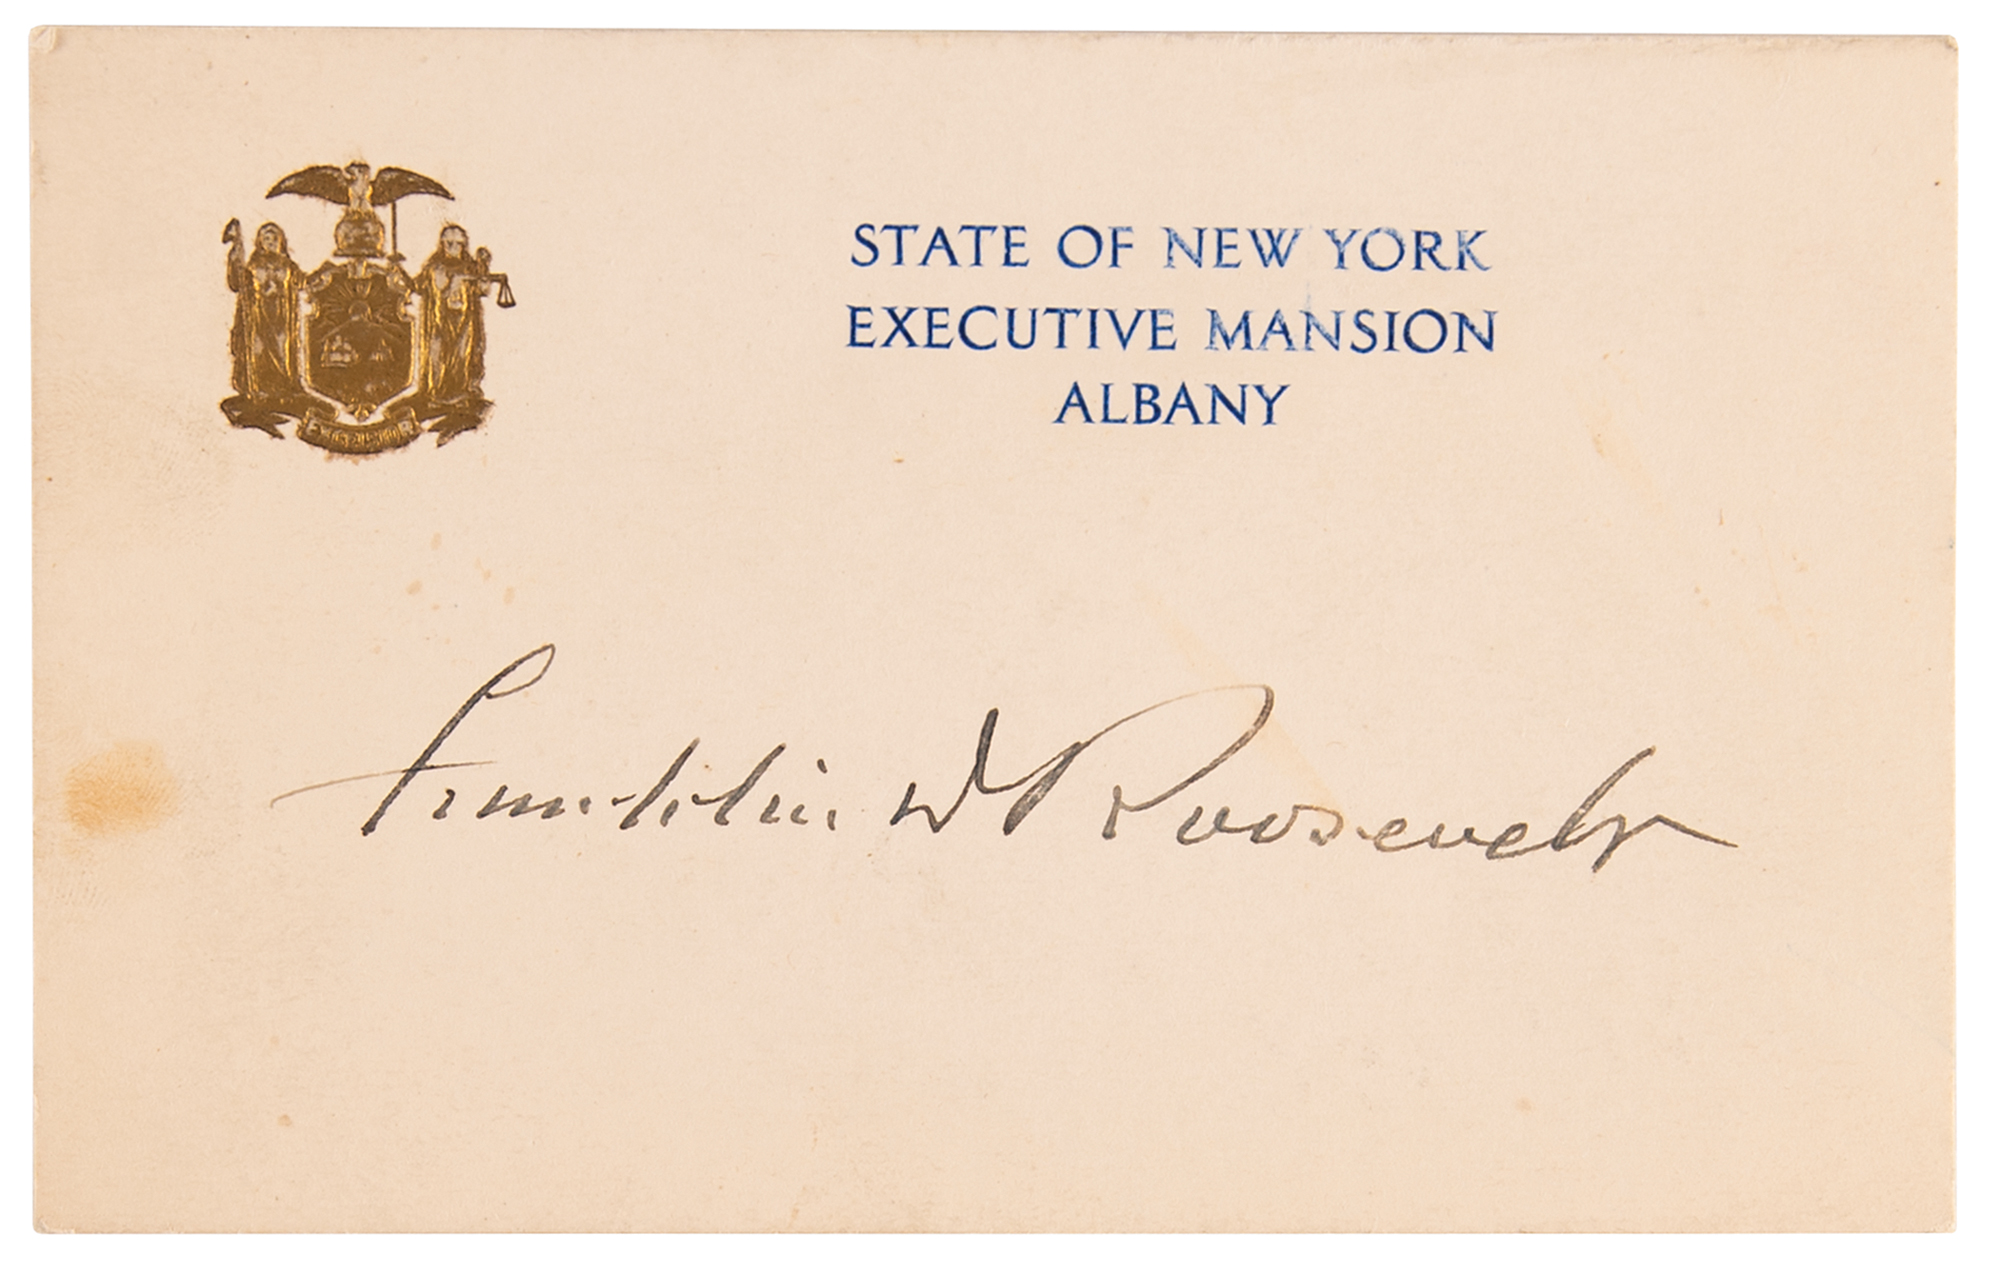 EXCELSIOR
STATE OF NEW YORK
EXECUTIVE MANSION
ALBANY
Franklin D Roosevelt